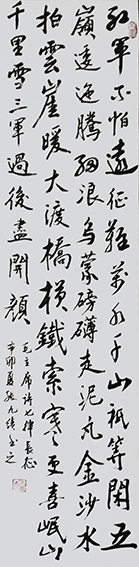 红軍不怕遠征難萬水千山祇等閑五
嶺逶迤騰細浪烏蒙磅礴走泥丸金沙水
拍雲崖暖大渡橋横鐵索寒更喜岷山
千里雪三軍過後盡開顔
毛主席诗七律長征
辛卯夏